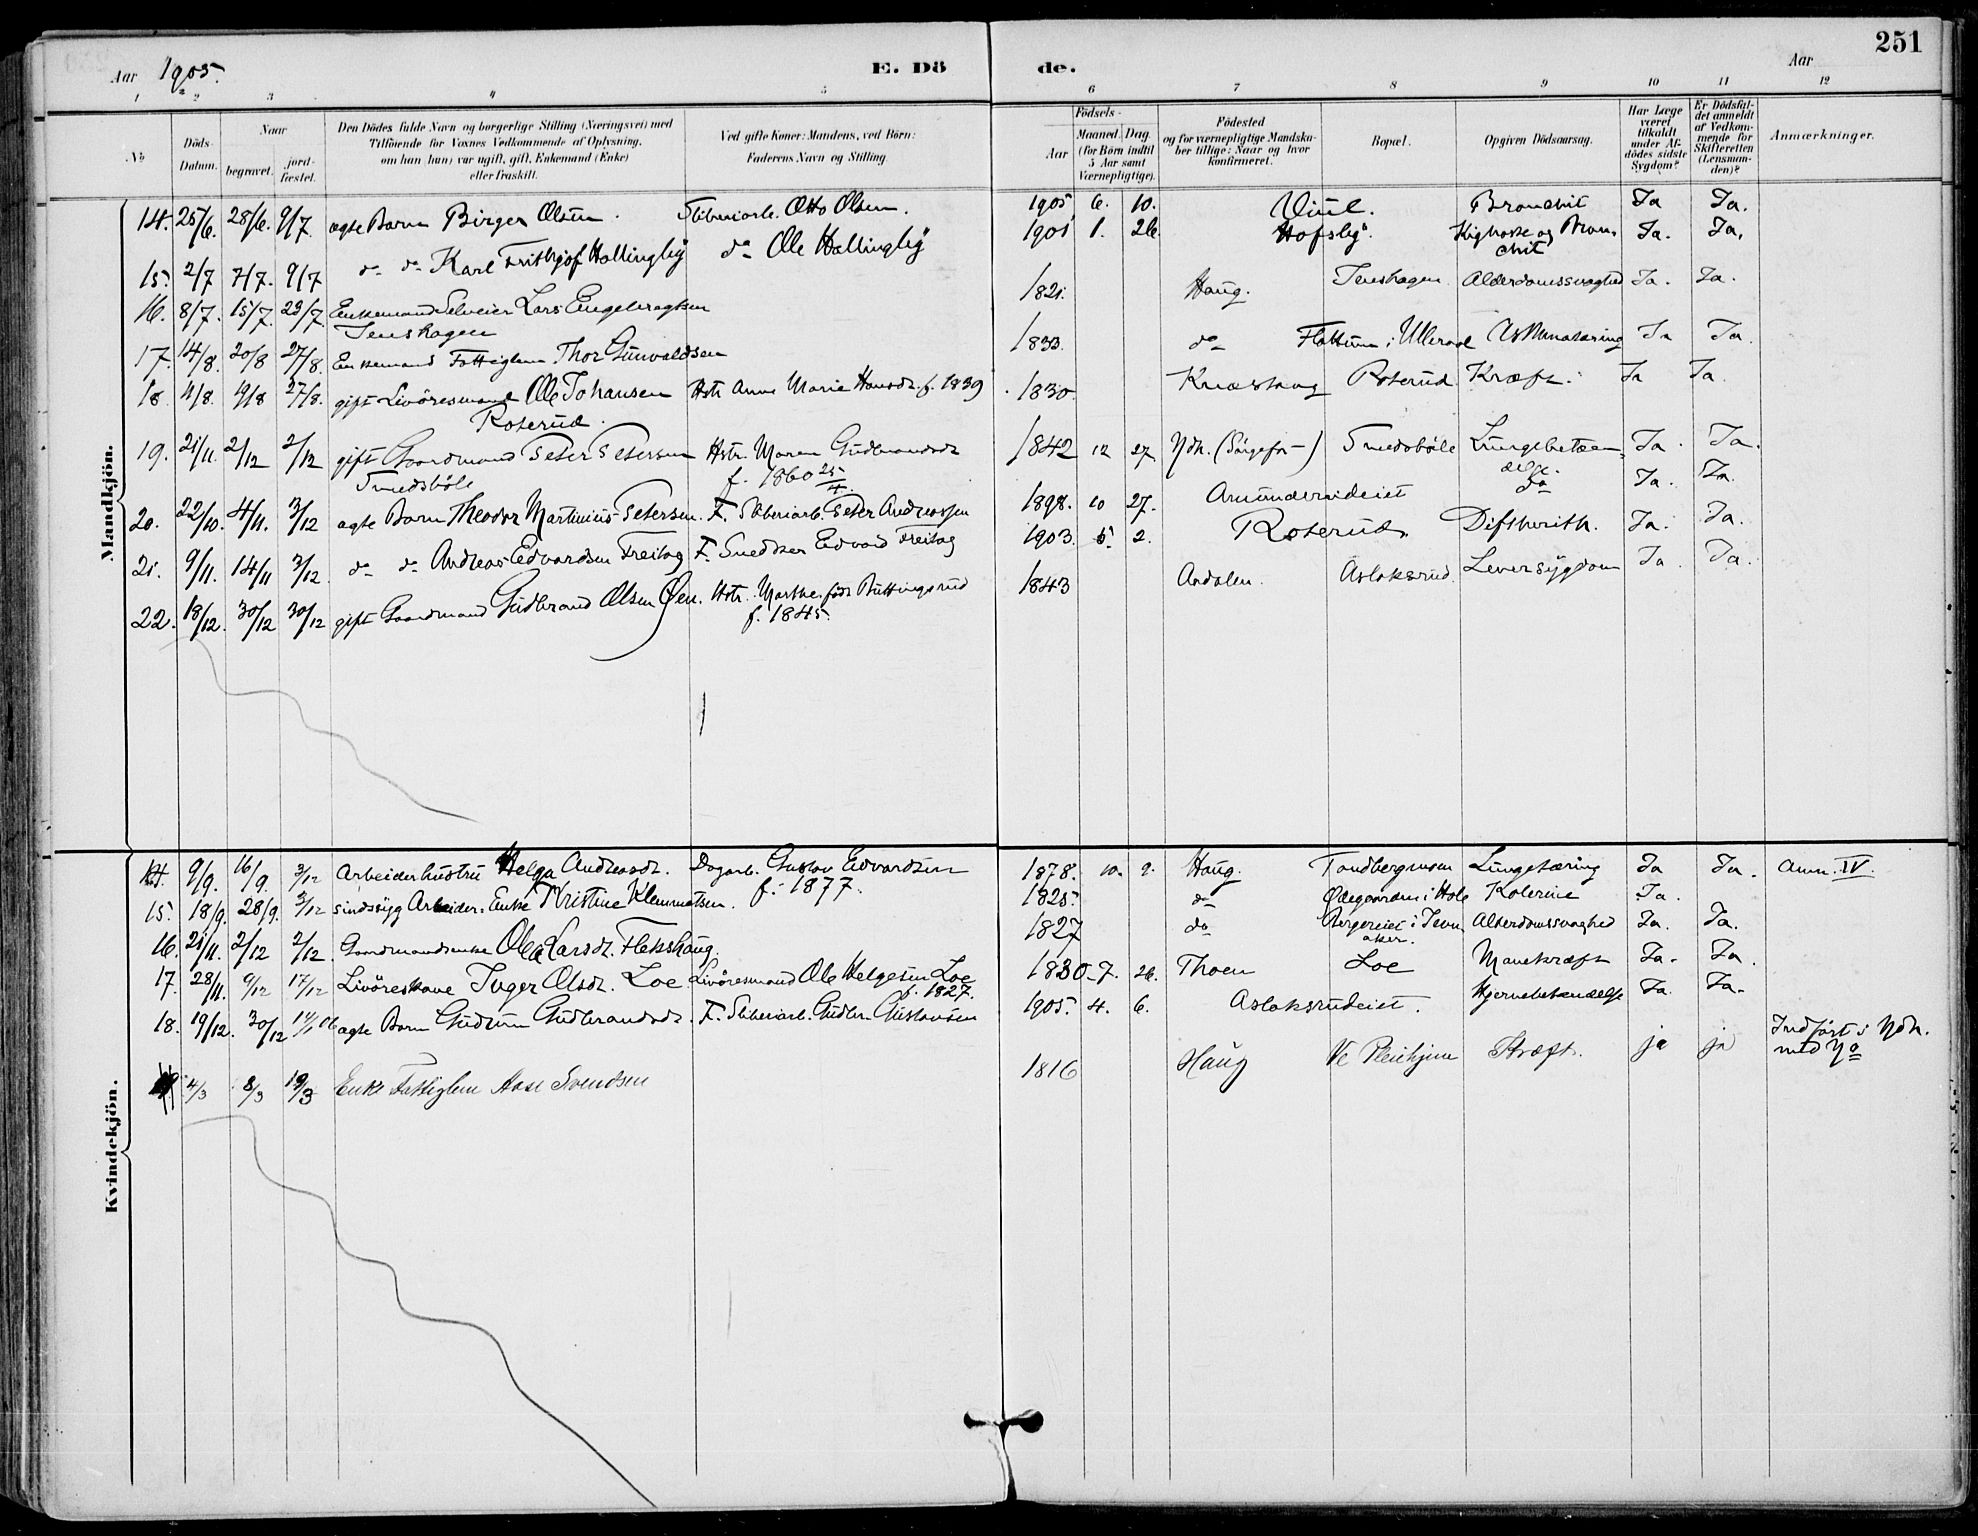 251
Aar 1905. E. Dö de. Aar
1 2 3 4 5 6 7 8 9 10 11 12
No Döds-Datum. Naar begravet. jord-fæstet. Den Dödes fulde Navn og borgerlige Stilling (Næringsvei) med Tilföiende for Voxnes Vedkommende af Oplysning, om han (hun) var ugift, gift, Enkemand (Enke) eller fraskilt. Ved gifte Koner: Mandens, ved Börn: Faderens Navn og Stilling. Födsels- Aar Maaned. Dag. (for Börn indtil 5 Aar samt Værnepligtige). Födested og for værnepligtige Mandskaber tillige: Naar og hvor konfirmeret. Bopæl. Opgiven Dödsaarsag. Har Læge været tilkaldt under Afdödes sidste Sygdom? Er Dödsfaldet anmeldt af Vedkommende for Skifteretten (Lensmanden)? Anmærkninger.
Mandkjön.
14. 25/6. 28/6. 9/7. ægte Barn Birger Olsen. Sliberiarb. Otto Olsen. 1905 6. 10. Viul. Bronchit Ja Ja.
15. 2/7 7/7. 9/7 do do Karl Frithjof Hallingby do Ole Hallingby 1901 1. 26. Hofsby. Kighoste og Bron-
chit Ja. Ja.
16. 8/7. 15/7. 23/7. Enkemand Selveier Lars Engebregtsen 1821. Haug. Jenshagen Alderdomssvaghed Ja. Ja.
Jenshagen
17. 14/8. 20/8 27/8. Enkemand Fattiglem Thor Gunvaldsen 1833. do Flattum i Ulleraal Ja Ja.
18. 4/8. 19/8 27/8. gift Livöresmand Ole Johansen Hstr Anne Marie Hansdr. f. 1839 1830. Roterud Kræft. Ja Ja.
Roterud.
19. 21/11. 2/12 2/12 gift Gaardmand Peter Petersen Hstr. Maren Gudbrandsdr 1842 12 27 Ndh. Smedsböle Lungebetæn- Ja. Ja.
Smedsböle f. 1860 25/4. delse.
20. 22/10. 4/11. 3/12 ægte Barn Theodor Martinius Petersen. F. Sliberiarb. Peter Andreassen 1898. 10 27. do Ja. Ja.
21. 9/11. 14/11 3/12. do do Andreas Edvardsen Freitag F. Smedsv. Edvard Freitag 1903. 5. 2. Roterud. Difsherith. Ja. Ja.
22. 18/12. 30/12 30/12 gift Gaardmand Gudbrand Olsen Öen. Hstr. Marthe födt Buttingsrud 1843 Aadalen. Aslaksrud. Leversygdom Ja. Ja.
f. 1845.
Kvindekjön.
14. 9/9. 16/9. 3/12 Arbeiderhustru Helga Andreasdr. Dagarb. Gustav Edvardsen 1878. 10. 9. Haug. Tandbergmoen Lungetæring Ja Ja. Anm. IV.
f. 1877.
15. 18/9. 28/9. 3/12 sindssyg Arbeider-Enke Kristine Klemmetsen. 1825. do Ödegaarden i Hole Kolerine Ja.
16. 21/11. 2/12 2/12. Gaardmandsenke Olea Larsdr. Flekshaug. 1827 do Bergereiet i Jevn-
aker. Alderdomssvaghed Ja. Ja.
17. 28/11. 9/12 17/12 Livöreskone Inger Olsdr. Loe Livöresmand Ole Helgesen Loe 1830 7. 26. Thoen Loe Mavekræft Ja. Ja.
f. 1827.
18. 19/12. 30/12 14/1 06 ægte Barn Gudrun Gudbrandsdr. F. Sliberiarb. Gudbr. Gustavsen 1905. 4. 6. Aslaksrudeiet. Hjernebetændelse Ja. Ja.
4/3 8/3 19/3 Enke Fattiglem Aase Svendsen 1816 Haug Ve Pleiehjem Kræft. ja ja Indfört i Ndh.
med No